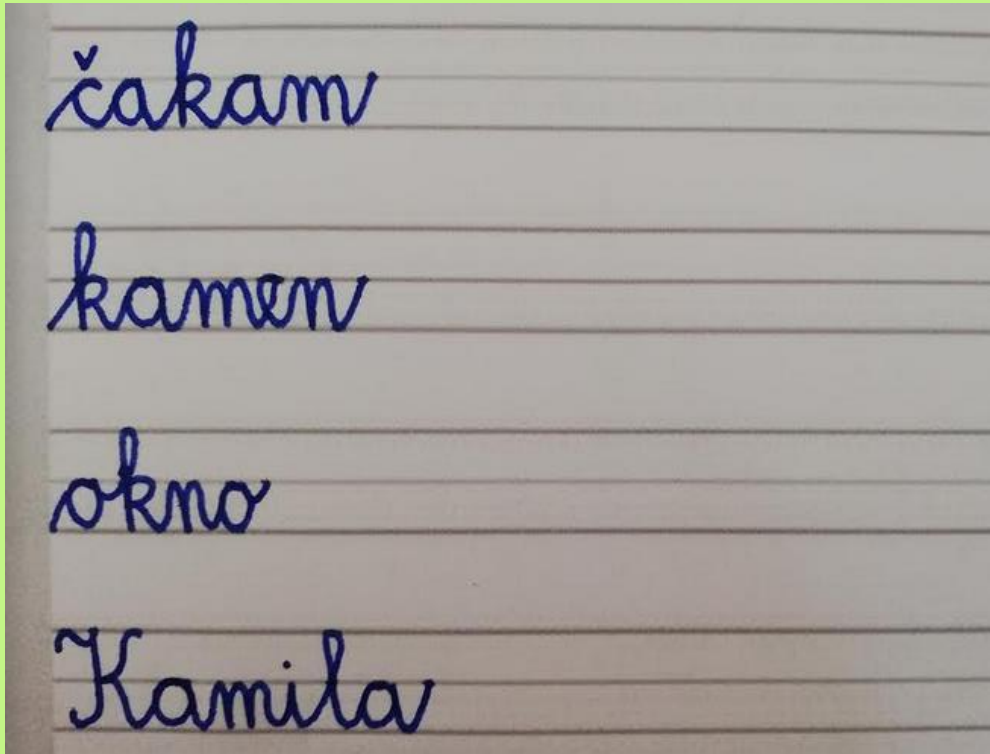 čakam
kamen
okno
Kamila